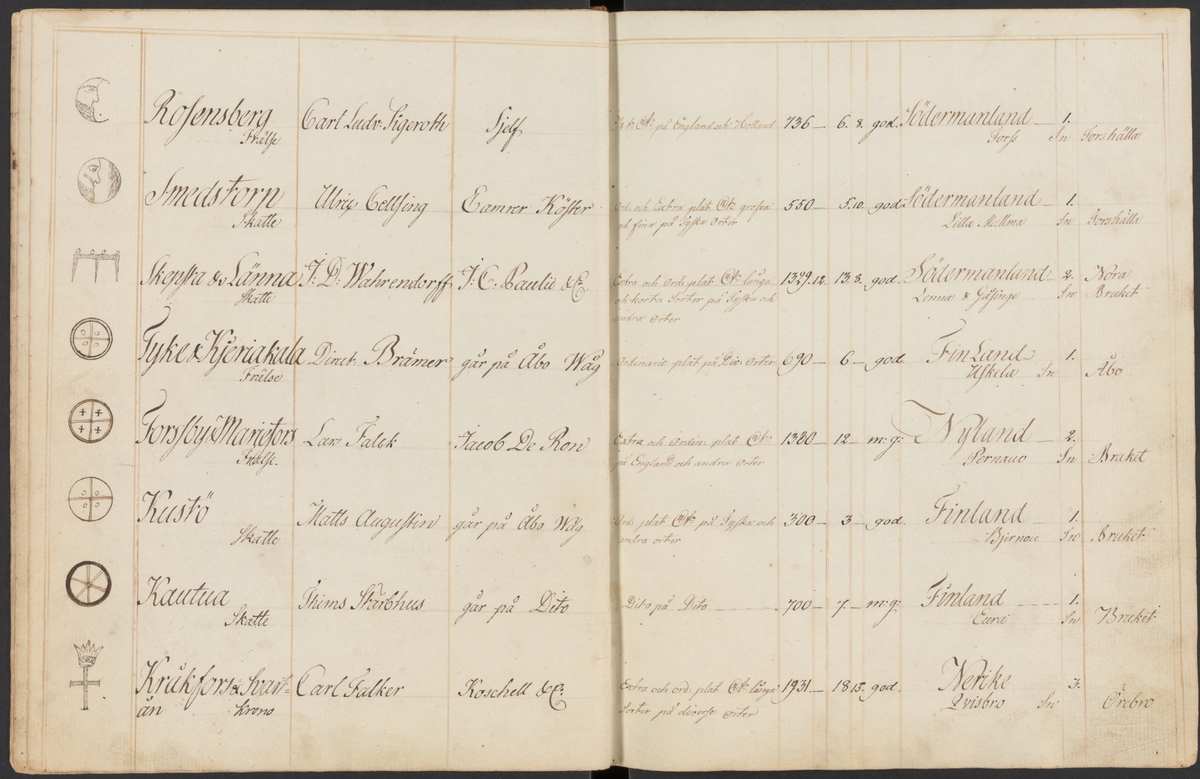 Rosensberg Carl Ludv: Sigeroth Sjelf på England och Holland 736 — 6. 8. god. Södermanland — 1.
Frälse Torss Sn Torshälla
Smedstorp Ulric Cellsing Camrer Köster Ord. och Extra plat grofva 550 — 5. 10. god. Södermanland — 1.
Skatte och fina på Tyska Orter Lilla Mallma Sn Torshälla
Skepsta & Länna J: D: Wahrendorff J: C: Paulie &C. Extra och Ord: plat långa 1329. 12. 13. 8. god Södermanland — 2. Nora
Skatte och korta Sorter på Tyska och Lenna & Gåsinge Sn Bruket
andra Orter
Tyke & Kjeriakala Direct. Brämer går på Åbo Wåg Ordinarie plat på Div. Orter 690 — 6 — god. Finland — 1.
Frälse Uskela Sn Åbo
Forsby & Marjefors Lars Falck Jacob De Ron Extra och Ordin: plat 1380 — 12 — m: g: Nyland — 2.
Frälse. på England och andra Orter Pernauo Sn Bruket
Kustö Matts Augustin går på Åbo Wåg Ord. plat på Tyska och 300 — 3 — god. Finland 1.
Skatte andra orter Bjernou Sn Bruket
Kautua Thims Skarbhus går på Dito Dito på Dito — 700 — 7 — m: g: Finland — 1.
Skatte Eura Sn Bruket
Kråkfors & Svart= Carl Falker Koschell &C: Extra och ord. plat långa 1931. — 18. 15. god. Nerike 3.
ån Krono Sorter på diverse Orter Qvisbro Sn Örebro